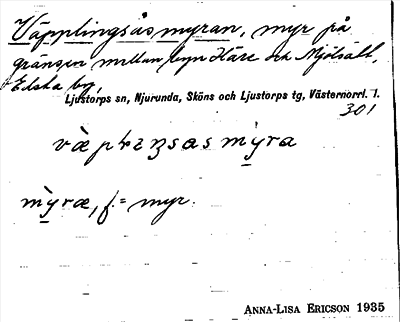 Väpplingsåsmyran, myr på
gränsen mellan byn Häre och Mjölsätt,
Elsta by,
Ljustorps sn, Njurunda, Sköns och Ljustorps tg, Västernorrl. l.
301
mỳra, f. = myr.
ANNA-LISA ERICSON 1935